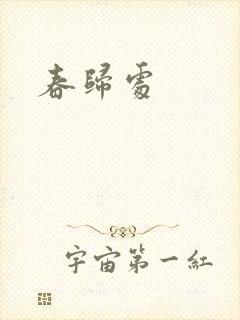 春歸處
宇宙第一紅